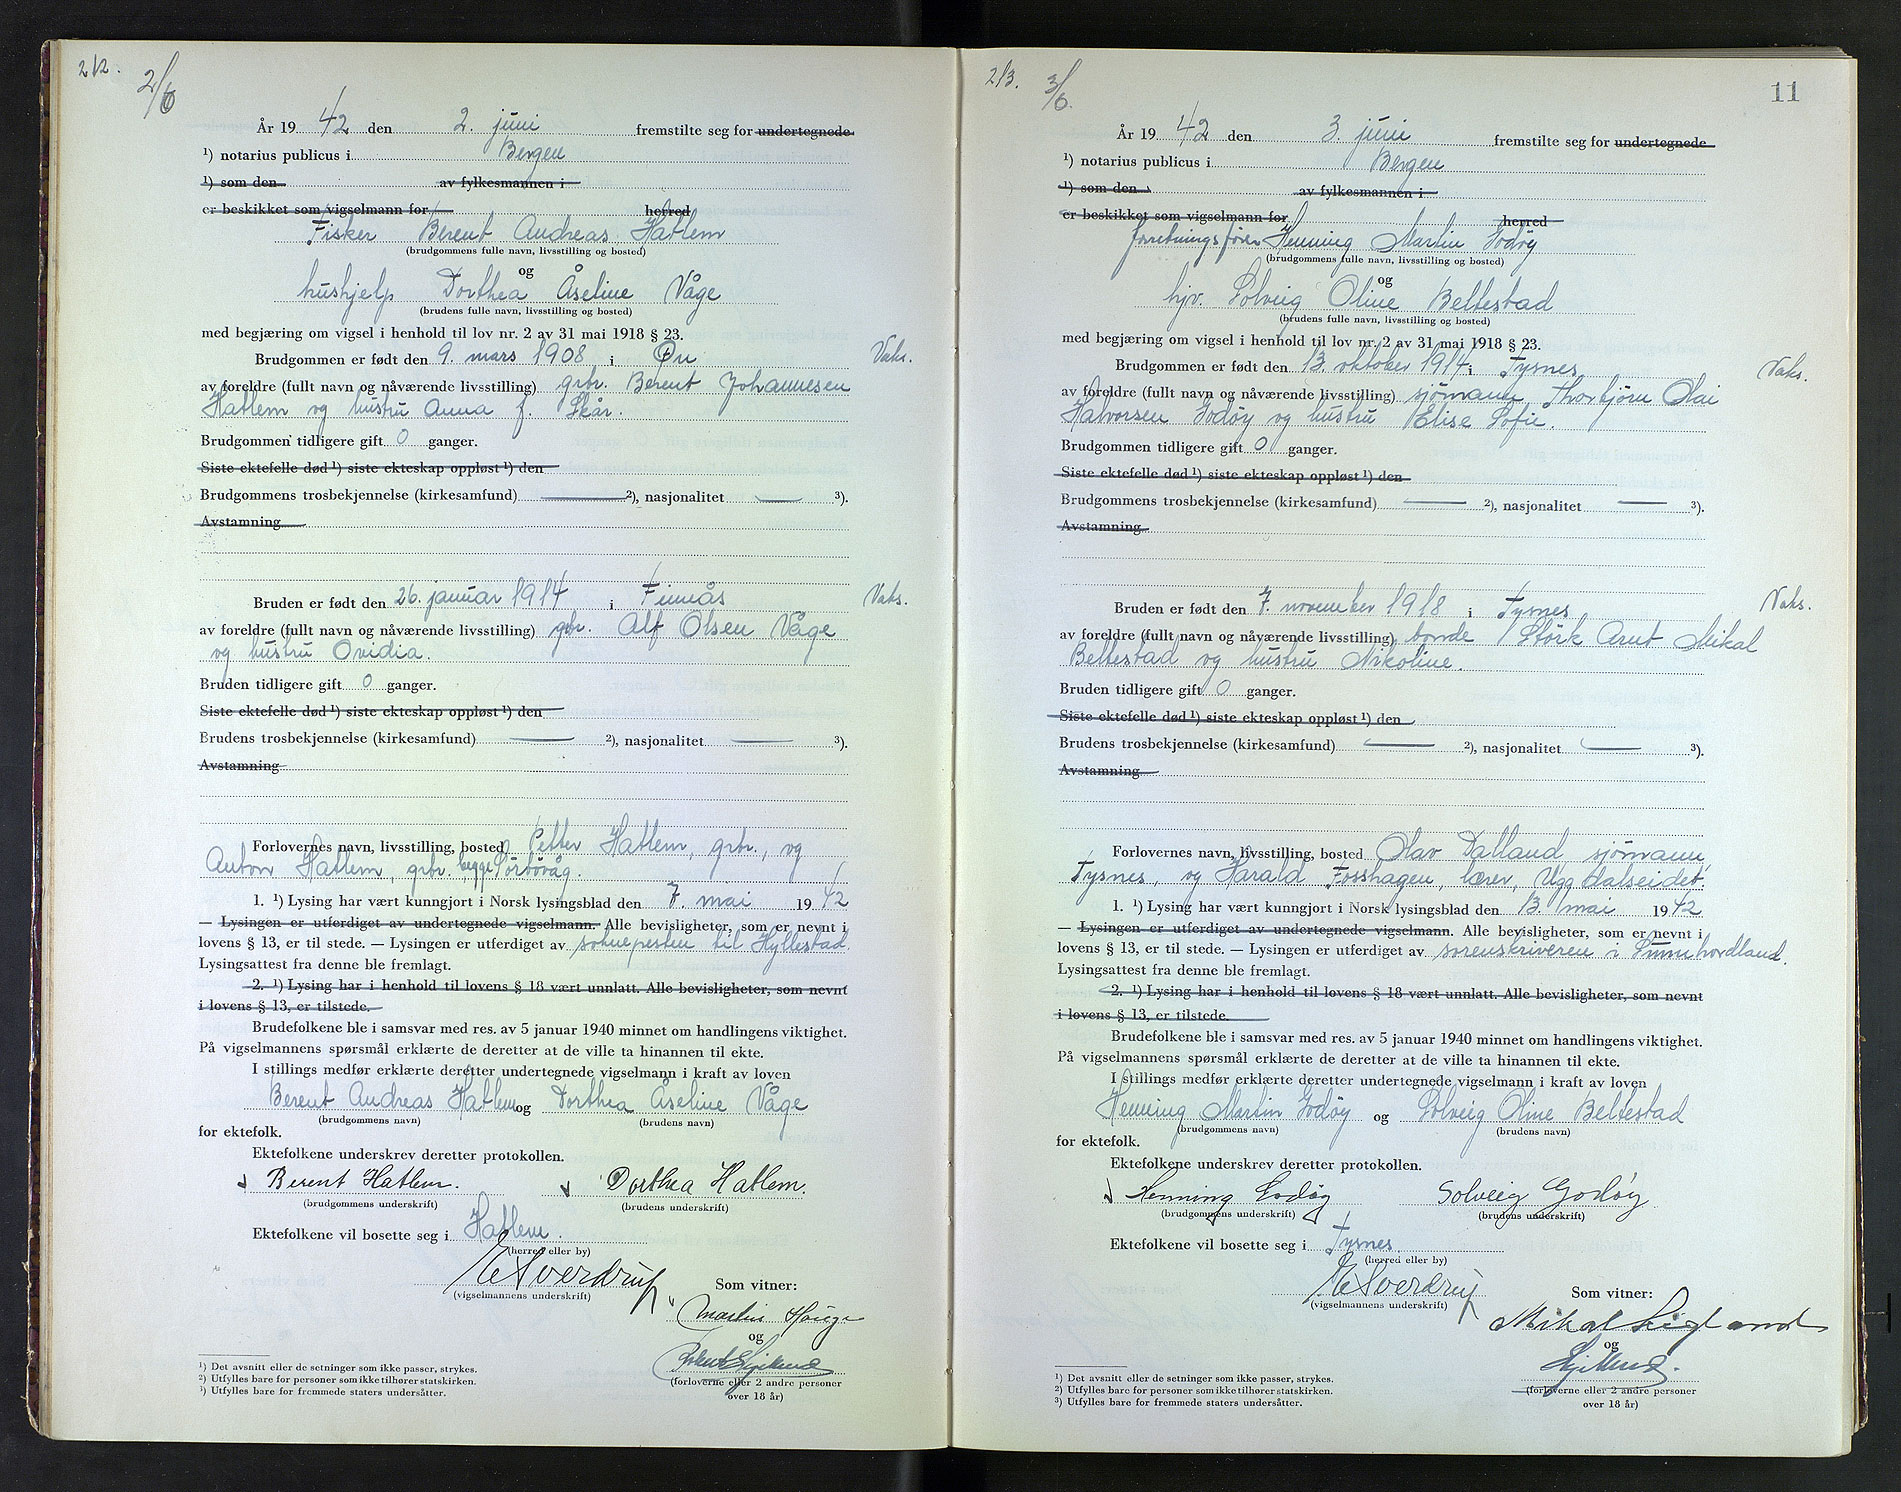 212.
2/6
År 19 42 den 2. juni fremstilte seg for undertegnede
¹) notarius publicus i Bergen
¹) som den av fylkesmannen i
er beskikket som vigselmann for herred
Fisker Berent Andreas Hatlem
(brudgommens fulle navn, livsstilling og bosted)
og
hushjelp Dorthea Åseline Våge
(brudens fulle navn, livsstilling og bosted)
med begjæring om vigsel i henhold til lov nr. 2 av 31 mai 1918 § 23.
Brudgommen er født den 9. mars 1908 i Øn Vaks.
av foreldre (fullt navn og nåværende livsstilling) grbr. Berent Johannesen
Hatlem og hustru Anna f. Skår.
Brudgommen tidligere gift 0 ganger.
Siste ektefelle død ¹) siste ekteskap oppløst ¹) den
Brudgommens trosbekjennelse (kirkesamfund) ²), nasjonalitet ³).
Avstamning
Bruden er født den 26. januar 1914 i Finnås Vaks.
av foreldre (fullt navn og nåværende livsstilling) gbr. Alf Olsen Våge
og hustru Ovidia.
Bruden tidligere gift 0 ganger.
Siste ektefelle død ¹) siste ekteskap oppløst ¹) den
Brudens trosbekjennelse (kirkesamfund) ²), nasjonalitet ³).
Avstamning
Forlovernes navn, livsstilling, bosted Petter Hatlem, grbr., og
Anton Hatlem, grbr. begge Sörbövåg.
1. ¹) Lysing har vært kunngjort i Norsk lysingsblad den 7. mai 19 42
— Lysingen er utferdiget av undertegnede vigselmann. Alle bevisligheter, som er nevnt i
lovens § 13, er til stede. — Lysingen er utferdiget av soknepresten til Hyllestad.
Lysingsattest fra denne ble fremlagt.
2. ¹) Lysing har i henhold til lovens § 18 vært unnlatt. Alle bevisligheter, som nevnt
i lovens § 13, er tilstede.
Brudefolkene ble i samsvar med res. av 5 januar 1940 minnet om handlingens viktighet.
På vigselmannens spørsmål erklærte de deretter at de ville ta hinannen til ekte.
I stillings medfør erklærte deretter undertegnede vigselmann i kraft av loven
Berent Andreas Hatlem og Dorthea Åseline Våge
(brudgommens navn) (brudens navn)
for ektefolk.
Ektefolkene underskrev deretter protokollen.
Berent Hatlem. Dorthea Hatlem.
(brudgommens underskrift) (brudens underskrift)
Ektefolkene vil bosette seg i Hatlem.
(herred eller by)
E Sverdrup
(vigselmannens underskrift)
Som vitner:
Martin Hauge
og
(forloverne eller 2 andre personer
over 18 år)
¹) Det avsnitt eller de setninger som ikke passer, strykes.
²) Utfylles bare for personer som ikke tilhører statskirken.
³) Utfylles bare for fremmede staters undersåtter.
213.
3/6.
11
År 19 42 den 3. juni fremstilte seg for undertegnede
¹) notarius publicus i Bergen
¹) som den av fylkesmannen i
er beskikket som vigselmann for herred
forretningsfører Henning Martin Godøy
(brudgommens fulle navn, livsstilling og bosted)
og
hjv. Solveig Oline Beltestad
(brudens fulle navn, livsstilling og bosted)
med begjæring om vigsel i henhold til lov nr. 2 av 31 mai 1918 § 23.
Brudgommen er født den 13. oktober 1914 i Tysnes Vaks.
av foreldre (fullt navn og nåværende livsstilling) sjömann Thorbjörn Olai
Halvorsen Godøy og hustru Elise Sofie.
Brudgommen tidligere gift 0 ganger.
Siste ektefelle død ¹) siste ekteskap oppløst ¹) den
Brudgommens trosbekjennelse (kirkesamfund) ²), nasjonalitet ³).
Avstamning
Bruden er født den 7. november 1918 i Tysnes Vaks.
av foreldre (fullt navn og nåværende livsstilling) bonde Störk Arnt Mikal
Beltestad og hustru Nikoline.
Bruden tidligere gift 0 ganger.
Siste ektefelle død ¹) siste ekteskap oppløst ¹) den
Brudens trosbekjennelse (kirkesamfund) ²), nasjonalitet ³).
Avstamning
Forlovernes navn, livsstilling, bosted Olav Dalland sjömann
Tysnes, og Harald Fosshagen, lærer, Uggdalseidet.
1. ¹) Lysing har vært kunngjort i Norsk lysingsblad den 13. mai 19 42
— Lysingen er utferdiget av undertegnede vigselmann. Alle bevisligheter, som er nevnt i
lovens § 13, er til stede. — Lysingen er utferdiget av sorenskriveren i Sunnhordland.
Lysingsattest fra denne ble fremlagt.
2. ¹) Lysing har i henhold til lovens § 18 vært unnlatt. Alle bevisligheter, som nevnt
i lovens § 13, er tilstede.
Brudefolkene ble i samsvar med res. av 5 januar 1940 minnet om handlingens viktighet.
På vigselmannens spørsmål erklærte de deretter at de ville ta hinannen til ekte.
I stillings medfør erklærte deretter undertegnede vigselmann i kraft av loven
Henning Martin Godøy og Solveig Oline Beltestad
(brudgommens navn) (brudens navn)
for ektefolk.
Ektefolkene underskrev deretter protokollen.
Henning Godøy Solveig Godøy
(brudgommens underskrift) (brudens underskrift)
Ektefolkene vil bosette seg i Tysnes.
(herred eller by)
E Sverdrup
(vigselmannens underskrift)
Som vitner:
Mikal
og
(forloverne eller 2 andre personer
over 18 år)
¹) Det avsnitt eller de setninger som ikke passer, strykes.
²) Utfylles bare for personer som ikke tilhører statskirken.
³) Utfylles bare for fremmede staters undersåtter.